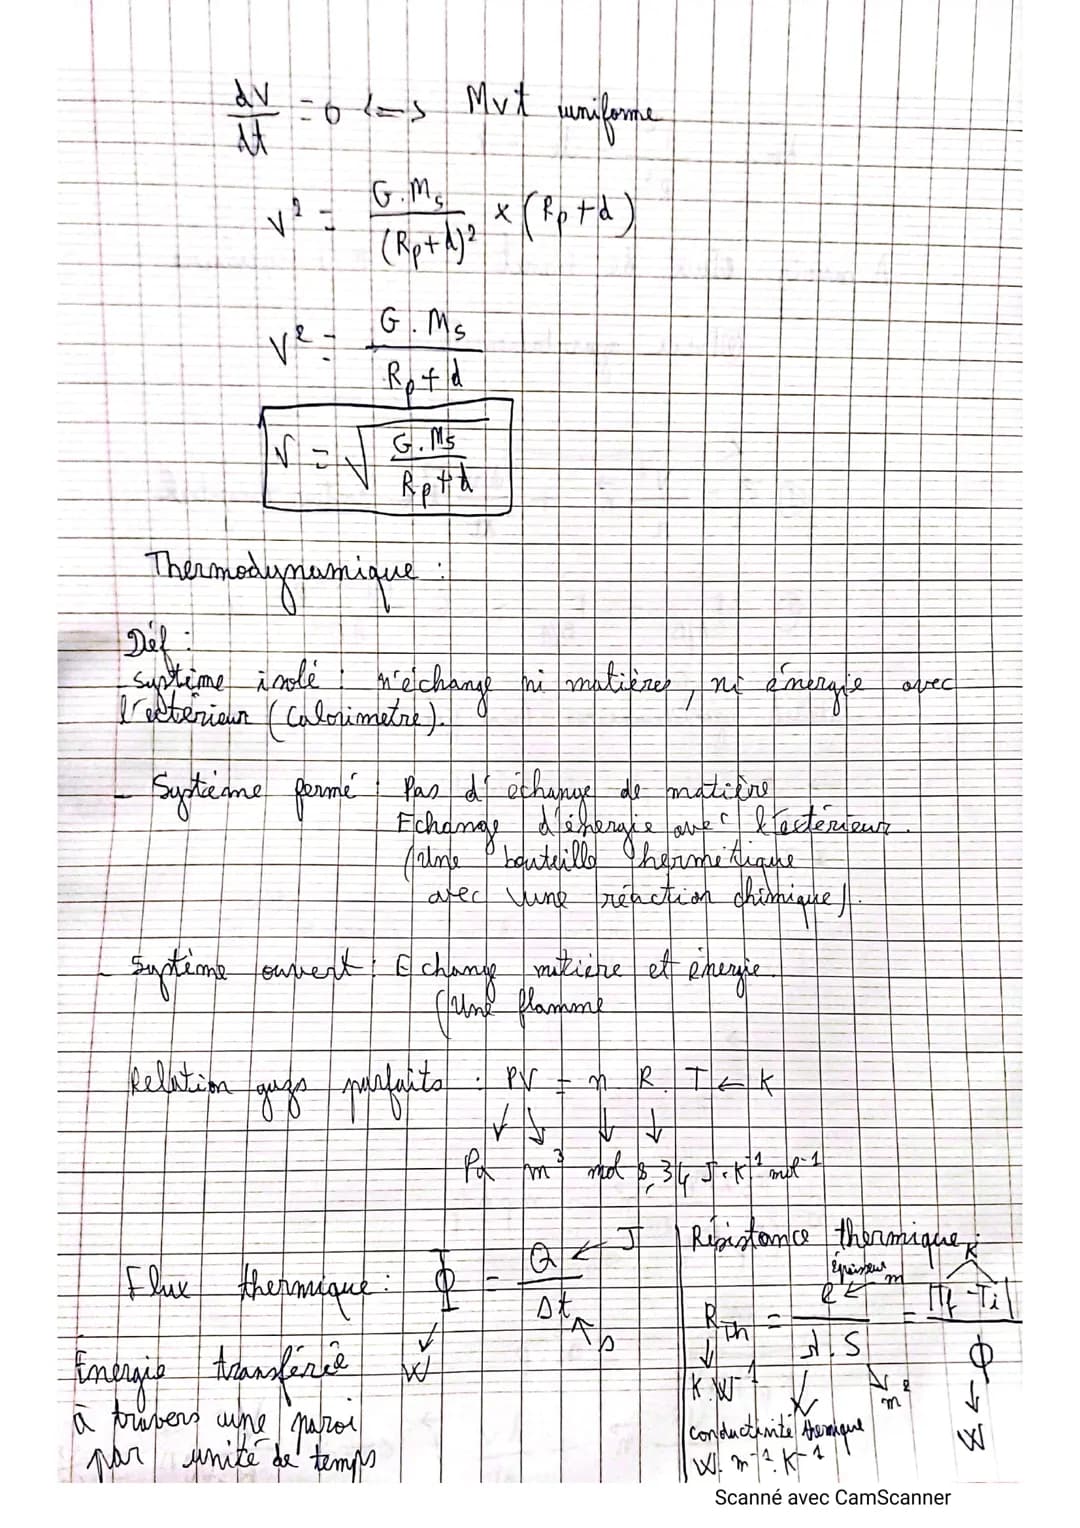 dV/dt = 0 <=> Mvt uniforme
V² = G.Ms/(Rp+d)² × (Rp+d)
V² = G.Ms/(Rp+d)
V = √(G.Ms/(Rp+d))
Thermodynamique :
Déf :
système isolé : n'échange ni matières, ni énergie avec
l'extérieur (Calorimetre).
- Système fermé : Pas d'échange de matière
Echange d'énergie avec l'extérieur.
(Une bouteille hermétique
avec une réaction chimique).
- Système ouvert : Echange matière et énergie.
(Une flamme
Relation gazs parfaits : PV = n R. T ← K
↓ ↓ ↓ ↓
Pa m³ mol 8,34 J.K⁻¹ mol⁻¹
Flux thermique : Φ = Q/Δt
Q ← J
Δt ↖ s
Φ ↓ W
Energie transférée
à travers une paroi
par unité de temps
Résistance thermique :
épaisseur m
K
R_Th = e/(λ.S) = |Tf - Ti|/Φ
↓ K.W⁻¹
m²
↓ W
conductivité thermique
W.m⁻¹.K⁻¹
Scanné avec CamScanner